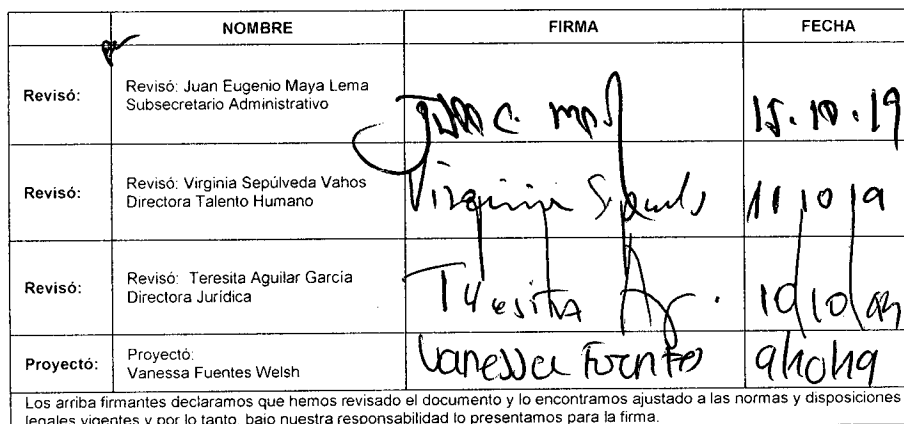 NOMBRE FIRMA FECHA
Revisó: Revisó: Juan Eugenio Maya Lema
Subsecretario Administrativo 15.10.19
Revisó: Revisó: Virginia Sepúlveda Vahos
Directora Talento Humano Virginia
Revisó: Revisó: Teresita Aguilar García
Directora Jurídica Teresita
Proyectó: Proyectó:
Vanessa Fuentes Welsh Vanessa Fuentes 9/10/19
Los arriba firmantes declaramos que hemos revisado el documento y lo encontramos ajustado a las normas y disposiciones
legales vigentes y por lo tanto, bajo nuestra responsabilidad lo presentamos para la firma.